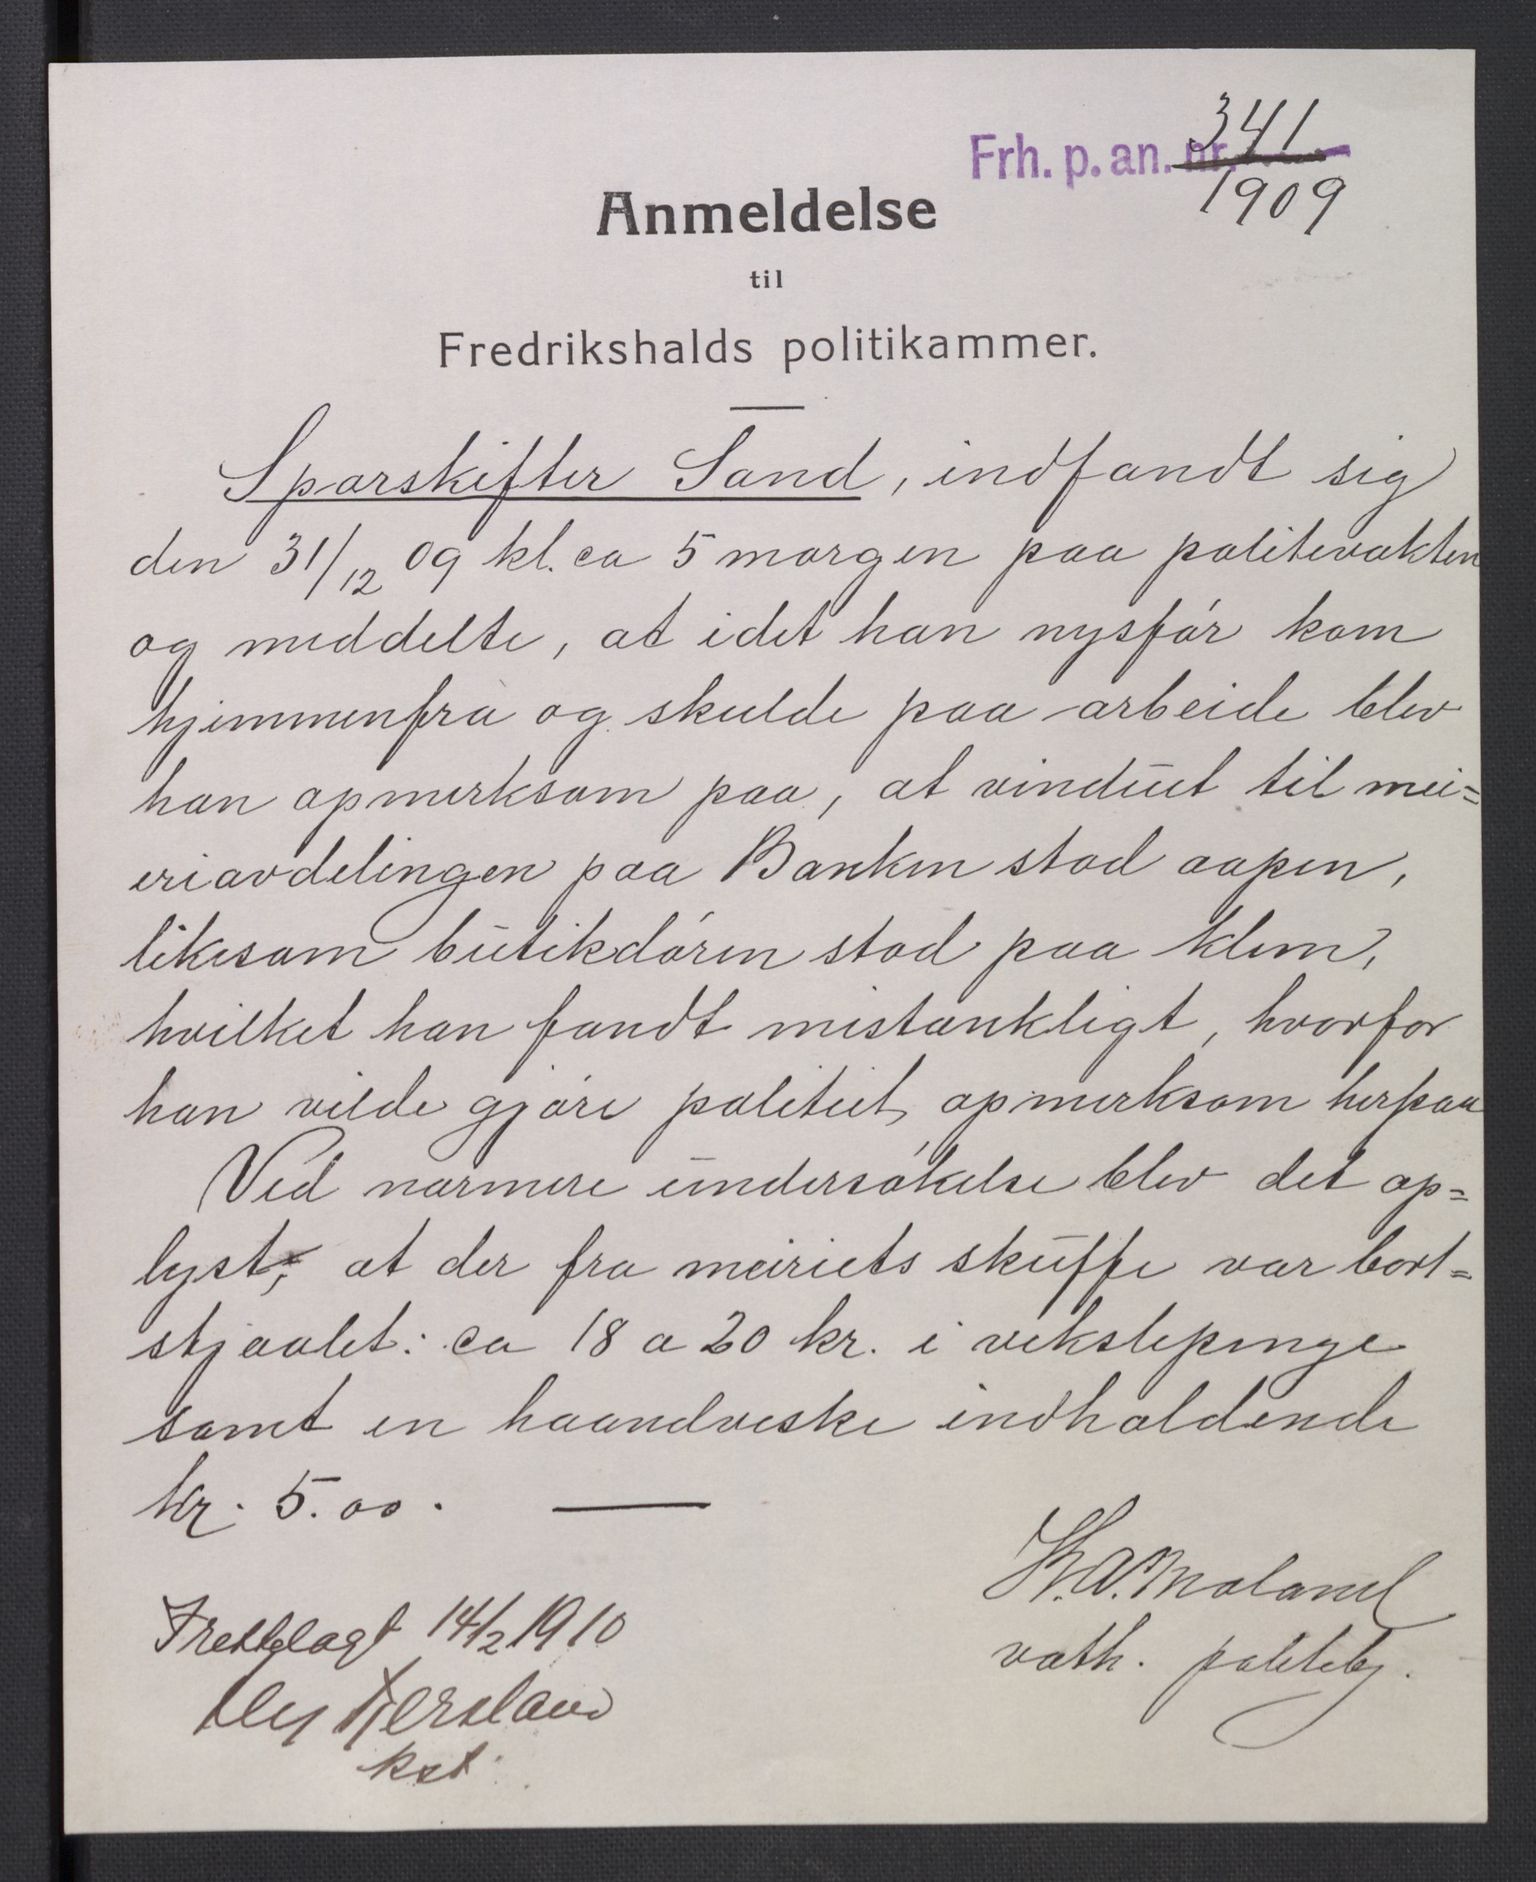 341
Frh. p. an. nr.
1909
Anmeldelse
til
Fredrikshalds politikammer.
Sporskifter Sand, indfandt sig
den 31/12 09 kl. ca 5 morgen paa politivakten
og meddelte, at idet han nysfór kom
hjemmenfra og skulde paa arbeide blev
han opmerksom paa, at vinduet til mei=
eriavdelingen paa Banken stod aapen,
likesom butikdóren stod paa klem,
hvilket han fandt mistænkligt, hvorfor
han vilde gjóre politiet opmerksom herpaa
Ved nærmere undersókelse blev det op=
lyst, at der fra meieriets skuffe var bort=
stjaalet: ca 18 a 20 kr. i vekslepenge
samt en haandveske indholdende
kr. 5.00.
K. A. Moland
vagth. politibtj.
14/2 1910
kst.